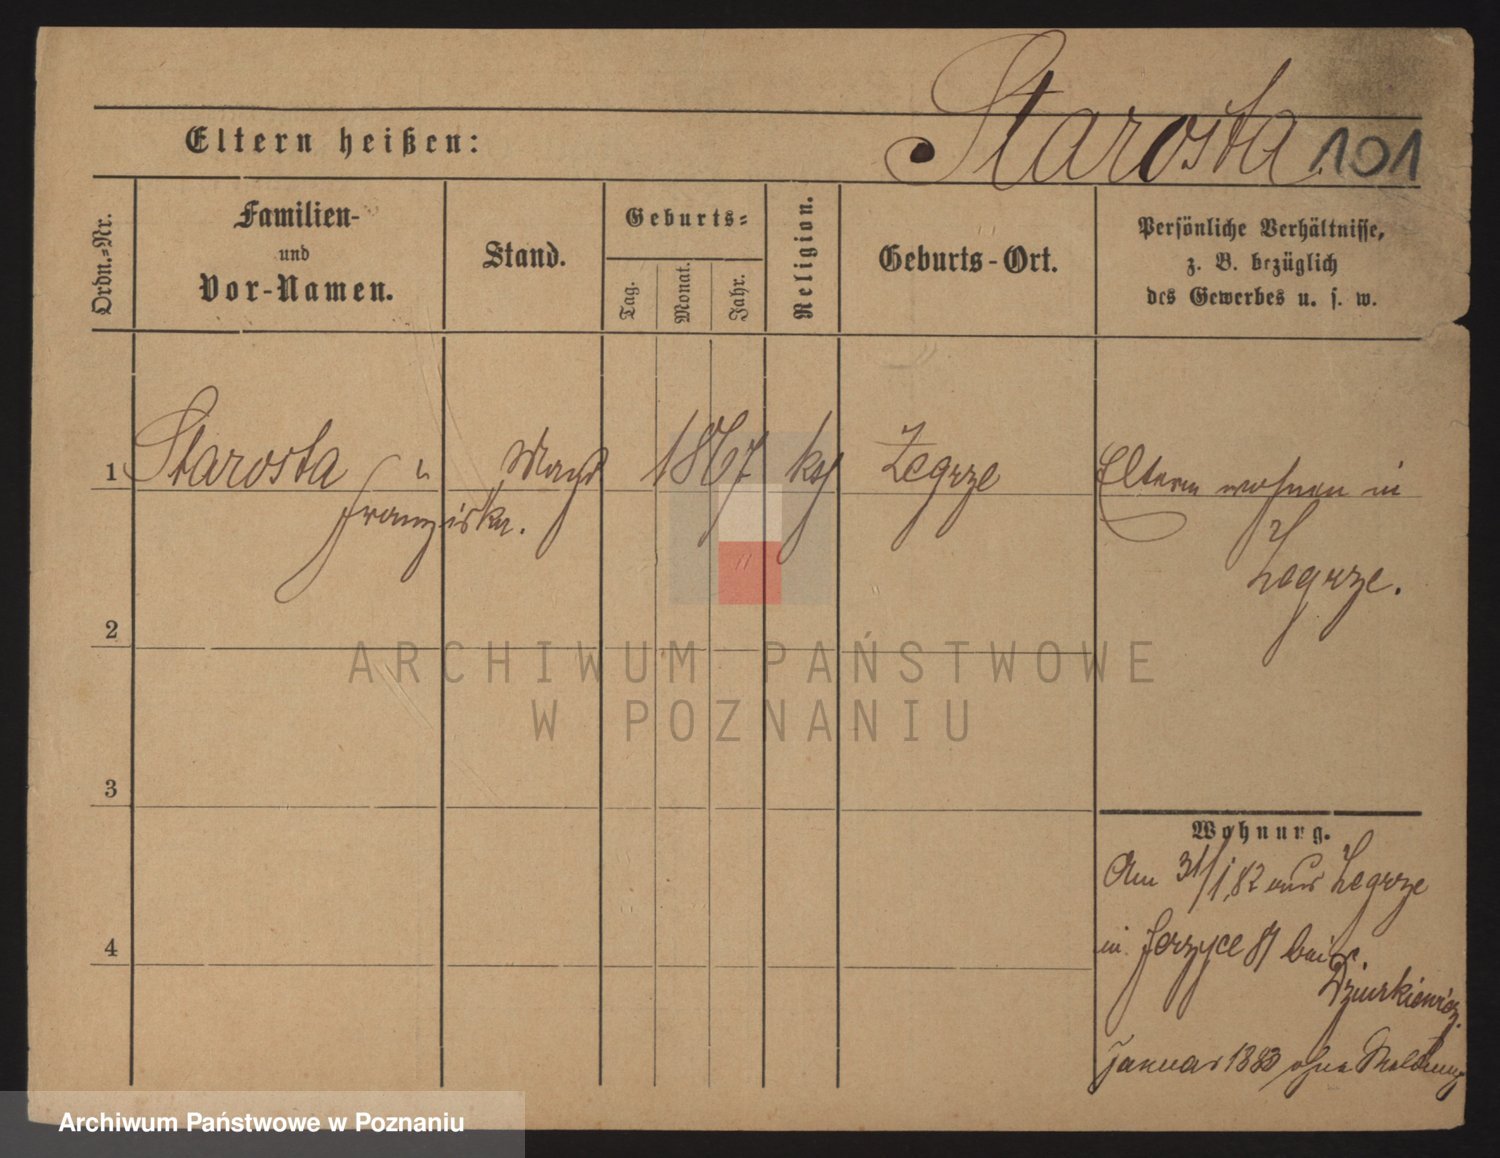 Starosta 101
Eltern heißen:
Ordn.-Nr.
Familien-
und
Vor-Namen.
Stand.
Geburts-
Tag.
Monat.
Jahr.
Religion.
Geburts-Ort.
Persönliche Verhältnisse,
z. B. bezüglich
des Gewerbes u. s. w.
1 Starosta Magd 1867 kth Zegrze Eltern wohnen in
Franziska.
Zegrze.
2
3
4
Wohnung.
Am 31/1.82 aus Zegrze
in Jerzyce 87 bei
Dziurkiewicz.
Januar 1883 ohne Meldung
ARCHIWUM PAŃSTWOWE
W POZNANIU
Archiwum Państwowe w Poznaniu